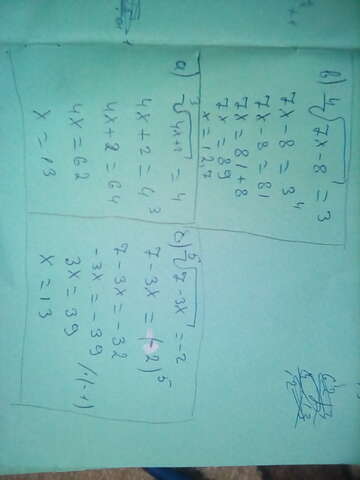 б) ⁴√7x-8 = 3
7x - 8 = 3⁴
7x - 8 = 81
7x = 81 + 8
7x = 89
x = 12,7
a) ³√4x+2 = 4
4x + 2 = 4³
4x + 2 = 64
4x = 62
x = 13
в) ⁵√7-3x = -2
7 - 3x = (-2)⁵
7 - 3x = -32
-3x = -39 /·(-1)
3x = 39
x = 13